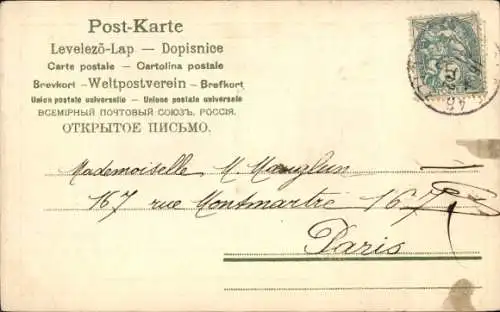 Post-Karte
Levelezö-Lap — Dopisnice
Carte postale — Cartolina postale
Brevkort - Weltpostverein - Brefkort
Union postale universelle — Unione postale universale
ВСЕМІРНЫЙ ПОЧТОВЫЙ СОЮЗЪ. РОССІЯ.
ОТКРЫТОЕ ПИСЬМО.
Mademoiselle M.
167 rue Montmartre 167
Paris